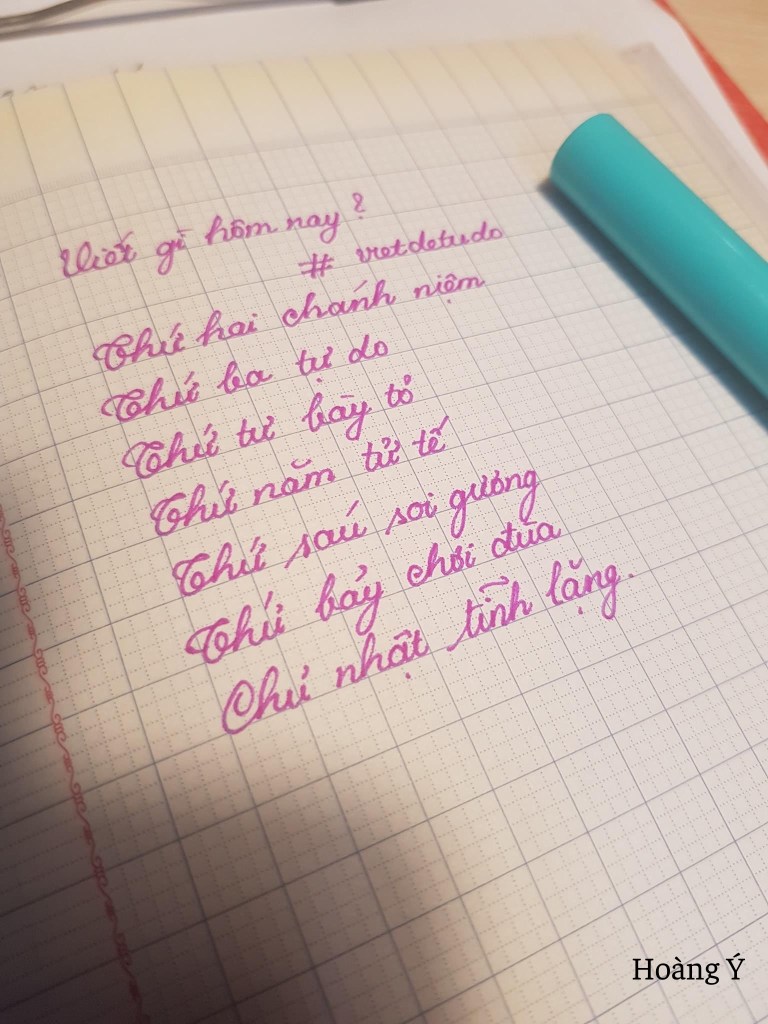 Viết gì hôm nay?
# vietdetudo
Thứ hai chánh niệm
Thứ ba tự do
Thứ tư bày tỏ
Thứ năm tử tế
Thứ sáu soi gương
Thứ bảy chơi đùa
Chủ nhật tĩnh lặng.
Hoàng Ý